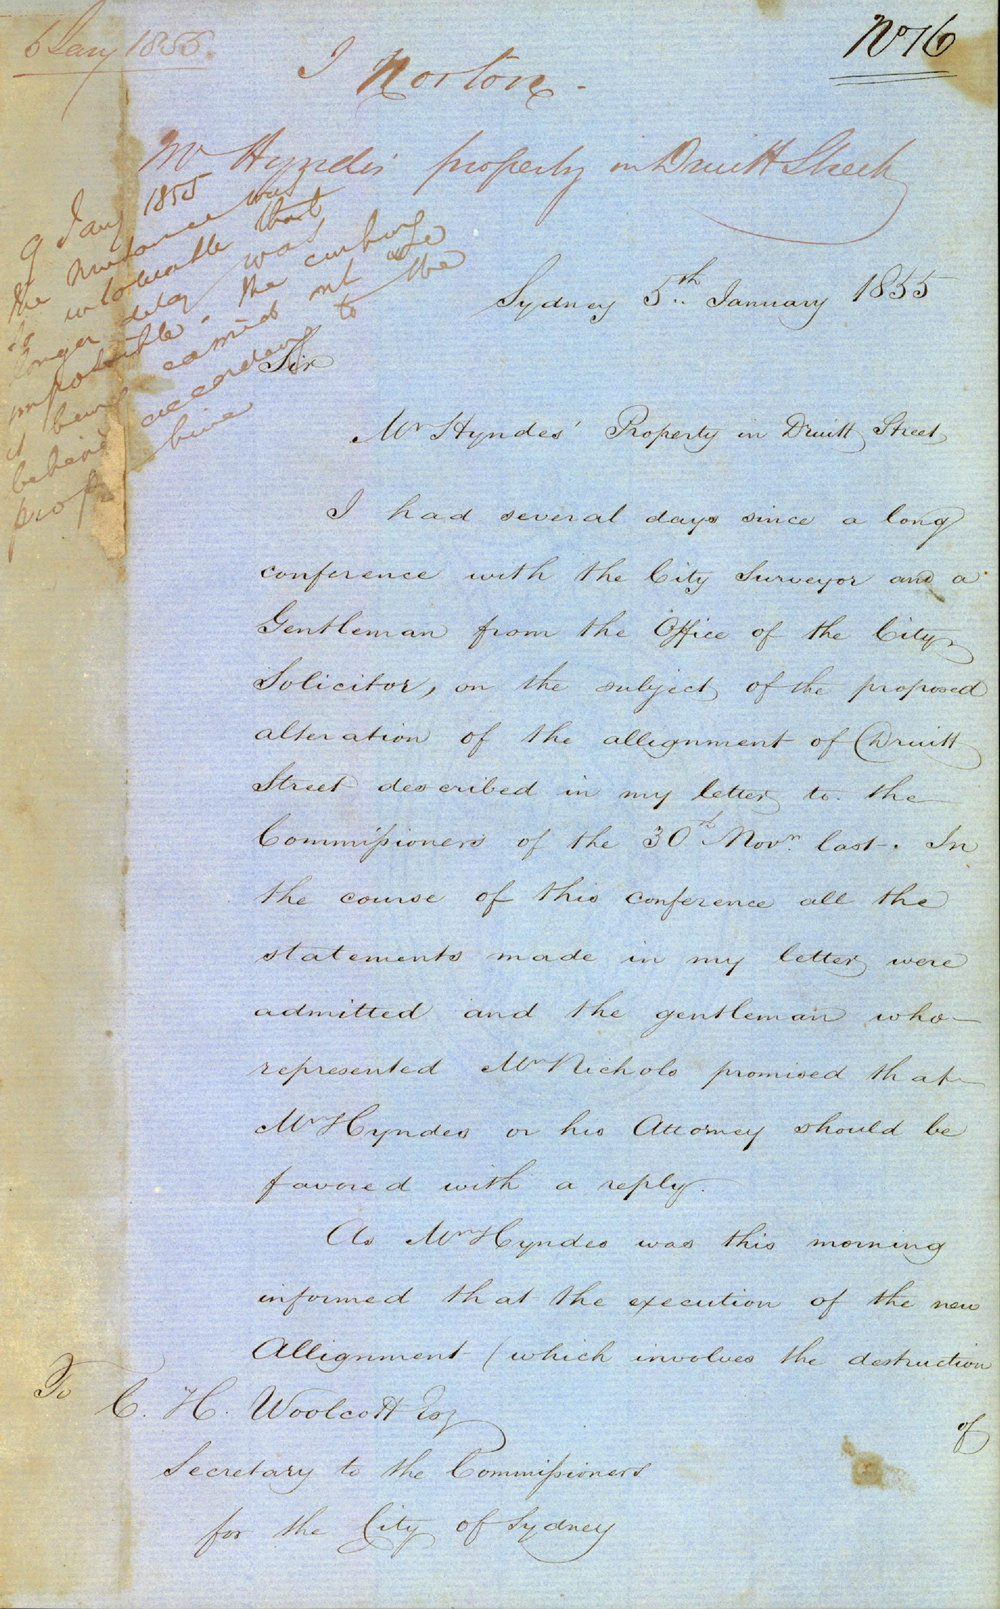 6 Jany 1855.
No 76
J Norton.
Mr Hyndes' property in Druitt Street
9 Jany 1855
the Nuisance was
so intolerable that
longer delay was
impossible. The curbing
is being carried out
behind according to the
proper line
Sydney 5th January 1855
Sir
Mr Hyndes' Property in Druitt Street
I had several days since a long
conference with the City Surveyor and a
Gentleman from the Office of the City
Solicitor, on the subject of the proposed
alteration of the allignment of Druitt
Street described in my letter to the
Commissioners of the 30th Novr. last. In
the course of this conference all the
statements made in my letter were
admitted and the gentleman who
represented Mr Nichols promised that
Mr Hyndes or his Attorney should be
favored with a reply.
As Mr Hyndes was this morning
informed that the execution of the new
Allignment (which involves the destruction
of
To C. H. Woolcott Esq
Secretary to the Commissioners
for the City of Sydney